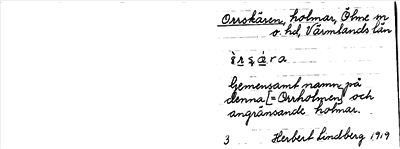 Orrskären, holmar, Ölme sn
o. hd, Värmlands län
Gemensamt namn på
denna [= Orrholmen] och
angränsande holmar.
3 Herbert Lindberg 1919